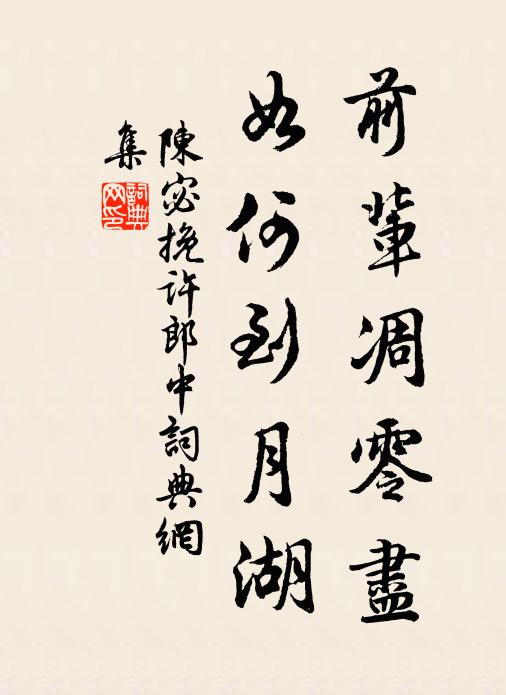 前輩凋零盡
如何到月湖
陳宓挽許郎中詞典網
集
詞典
网印